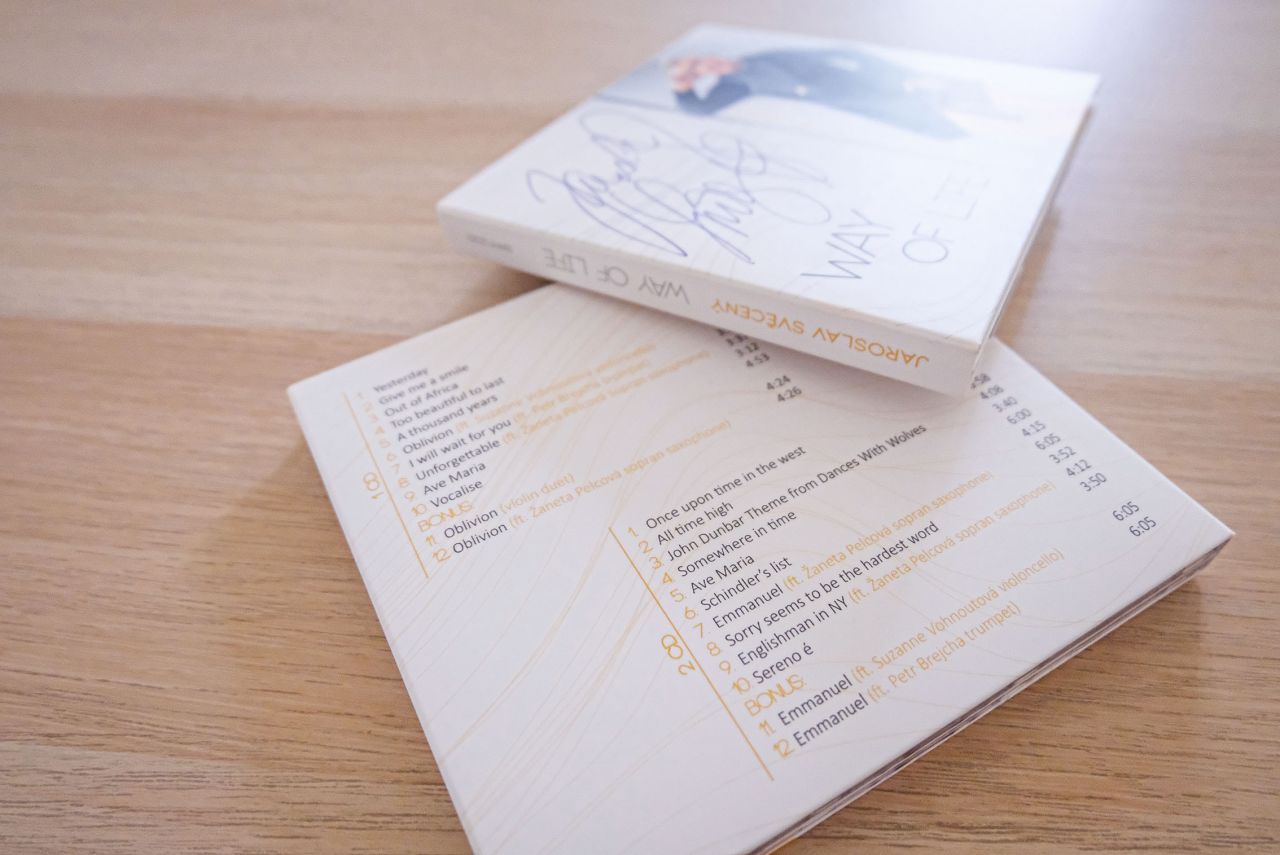 WAY
OF LIFE
JAROSLAV SVĚCENÝ WAY OF LIFE
CD 1
1 Yesterday
2 Give me a smile
3 Out of Africa
4 Too beautiful to last
5 A thousand years
6 Oblivion (ft. Suzanne Vohnoutová violoncello)
7 I will wait for you (ft. Petr Brejcha trumpet)
8 Unforgettable (ft. Žaneta Pelcová sopran saxophone)
9 Ave Maria
10 Vocalise
BONUS:
11 Oblivion (violin duet)
12 Oblivion (ft. Žaneta Pelcová sopran saxophone)
3:12
4:53
4:24
4:26
CD 2
1 Once upon time in the west
2 All time high
3 John Dunbar Theme from Dances With Wolves
4 Somewhere in time
5 Ave Maria
6 Schindler's list
7 Emmanuel (ft. Žaneta Pelcová sopran saxophone)
8 Sorry seems to be the hardest word
9 Englishman in NY (ft. Žaneta Pelcová sopran saxophone)
10 Sereno é
BONUS:
11 Emmanuel (ft. Suzanne Vohnoutová violoncello)
12 Emmanuel (ft. Petr Brejcha trumpet)
:58
4:08
3:40
6:00
4:15
6:05
3:52
4:12
3:50
6:05
6:05